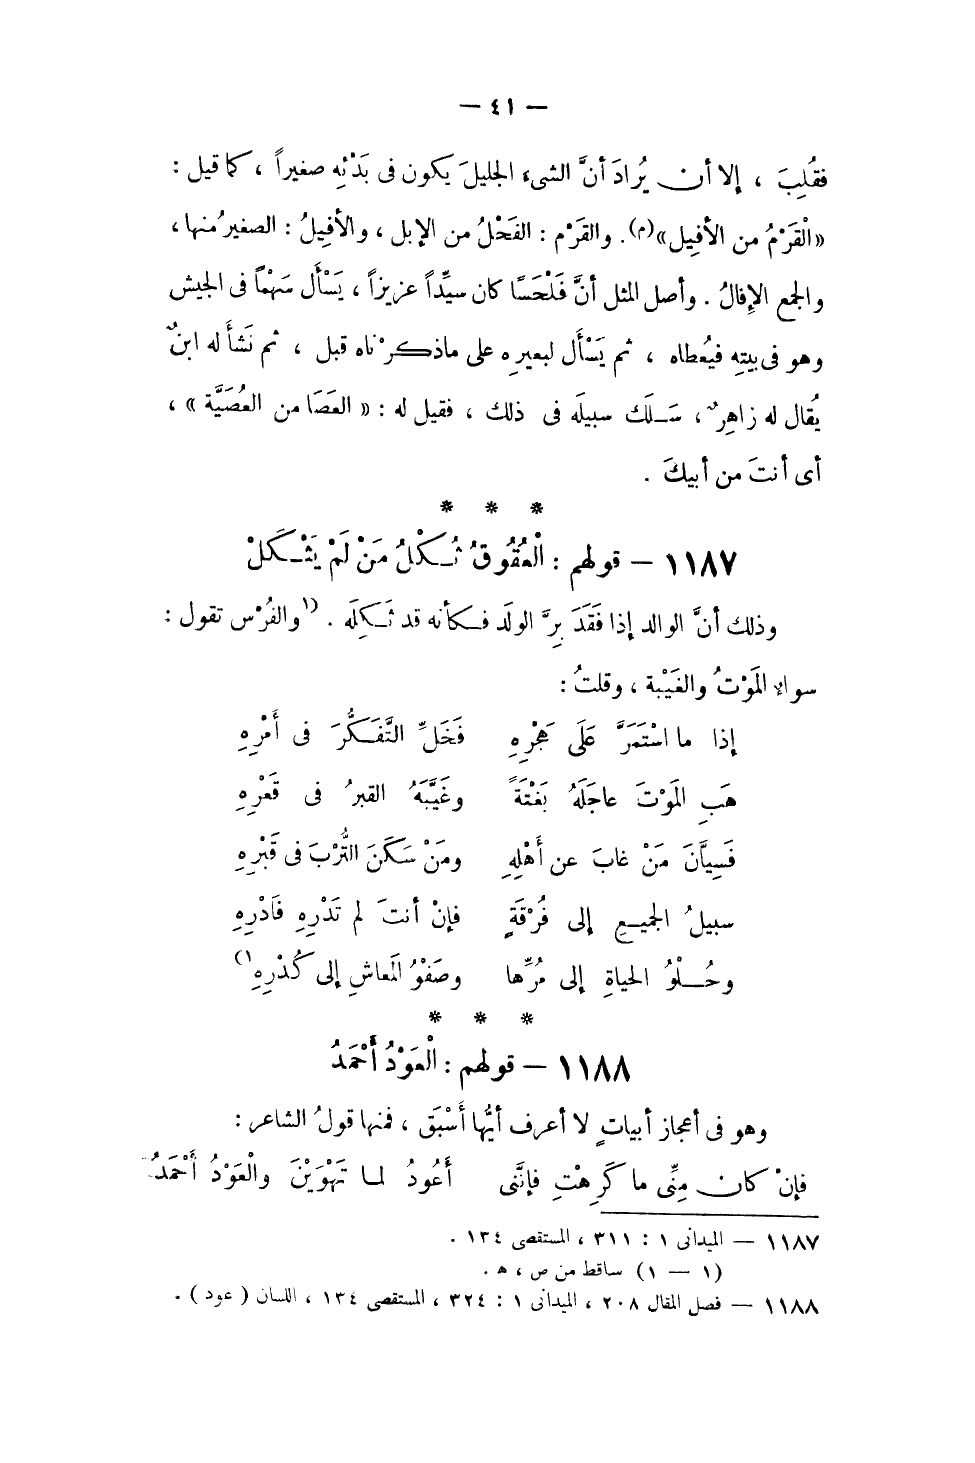 — ٤١ —
فقُلِبَ ، إلا أن يُرادَ أنَّ الشىء الجليلَ يكون فى بَدْئِه صغيراً ، كما قيل :
«الْقَرْمُ من الأفِيل»(م). والقَرْم : الفَحْلُ من الإبل ، والأفِيلُ : الصغيرُ منها،
والجمع الإِفالُ . وأصل المثل أنَّ فَلْحَسًا كان سيِّداً عزيزاً ، يَسْأَل سَهْمًا فى الجيش
وهو فى بيتِه فيُعطاه ، ثم يَسْأَل لبعيرِه على ماذكرْناه قبل ، ثم نَشأَ له ابنٌ
يُقال له زاهِرٌ ، سَلَك سبيلَه فى ذلك ، فقيل له : « العَصَا من العُصَيَّة » ،
أى أنتَ من أبيكَ .
* * *
١١٨٧ — قولهم : الْعُقُوقُ ثُكْلُ مَنْ لَمْ يَثْكَلْ
وذلك أنَّ الوالد إذا فَقَدَ بِرَّ الولَد فكأنه قد ثَكِلَه . (١والفُرْس تقول :
سواء المَوْتُ والغَيْبة ، وقلتُ :
إذا ما اسْتَمَرَّ عَلَى هَجْرِهِ فَخَلِّ التَّفَكُّرَ فى أَمْرِهِ
هَبِ المَوْتَ عاجَلَهُ بَغْتَةً وغَيَّبَهُ القبرُ فى قَعْرِهِ
فَسِيَّانَ مَنْ غابَ عن أَهْلِهِ ومَنْ سَكَنَ التُّرْبَ فى قَبْرِهِ
سبيلُ الجميعِ إلى فُرْقَةٍ فإنْ أنتَ لم تَدْرِهِ فَادْرِهِ
وحُلْوُ الحياةِ إلى مُرِّها وصَفْوُ المَعاشِ إلى كُدْرِهِ١)
* * *
١١٨٨ — قولهم : الْعَوْدُ أَحْمَدُ
وهو فى أعجاز أبياتٍ لا أعرف أيُّها أَسْبَق ، فمنها قولُ الشاعر :
فإنْ كان مِنِّى ما كَرِهْتِ فإنَّنى أَعُودُ لما تَهْوَيْنَ والْعَوْدُ أَحْمَدُ
١١٨٧ — الميدانى ١ : ٣١١ ، المستقصى ١٣٤ .
(١ — ١) ساقط من ص ، هـ .
١١٨٨ — فصل المقال ٢٠٨ ، الميدانى ١ : ٣٢٤ ، المستقصى ١٣٤ ، اللسان ( عود ) .